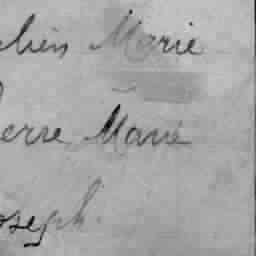 lien Marie
erre Marie
oseph.